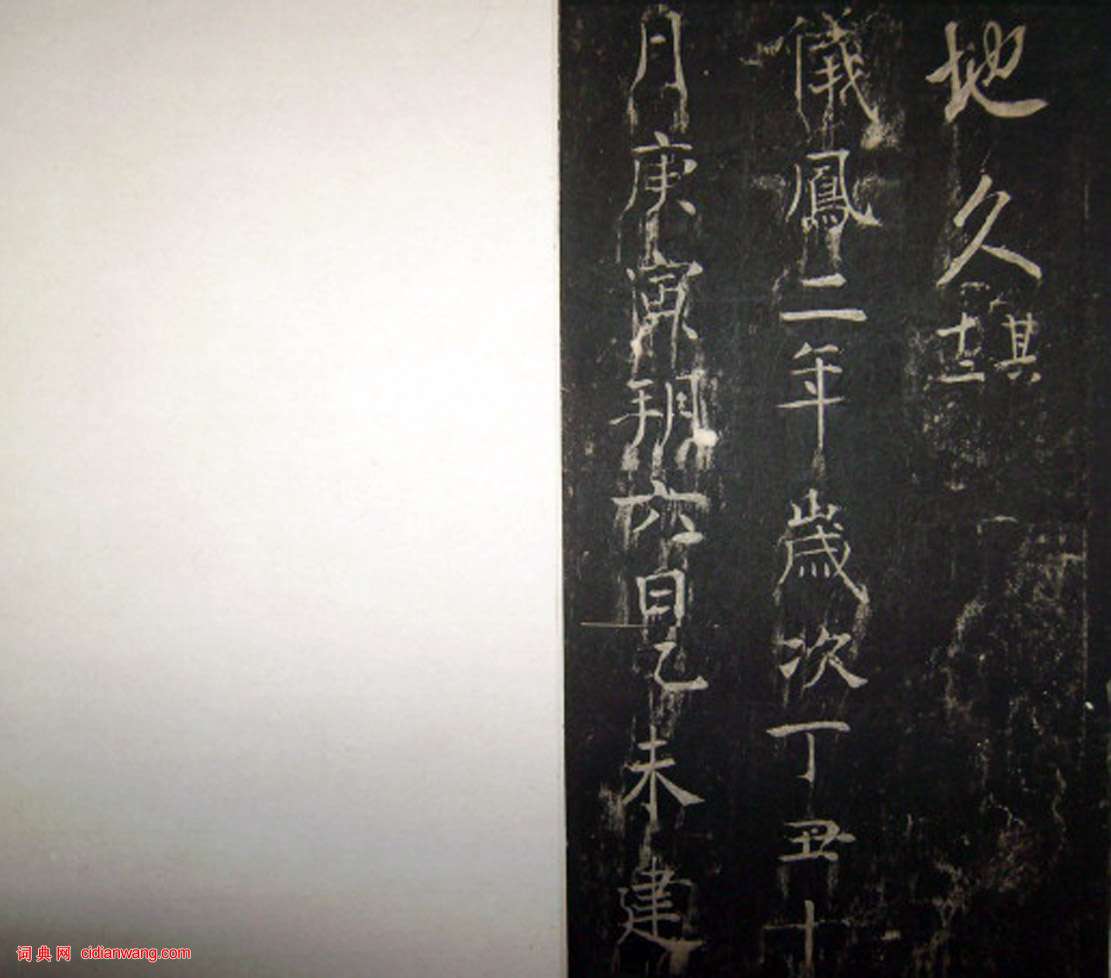 地久其十二
儀鳳二年歲次丁丑十
月庚寅朔六日乙未建
词典网 cidianwang.com